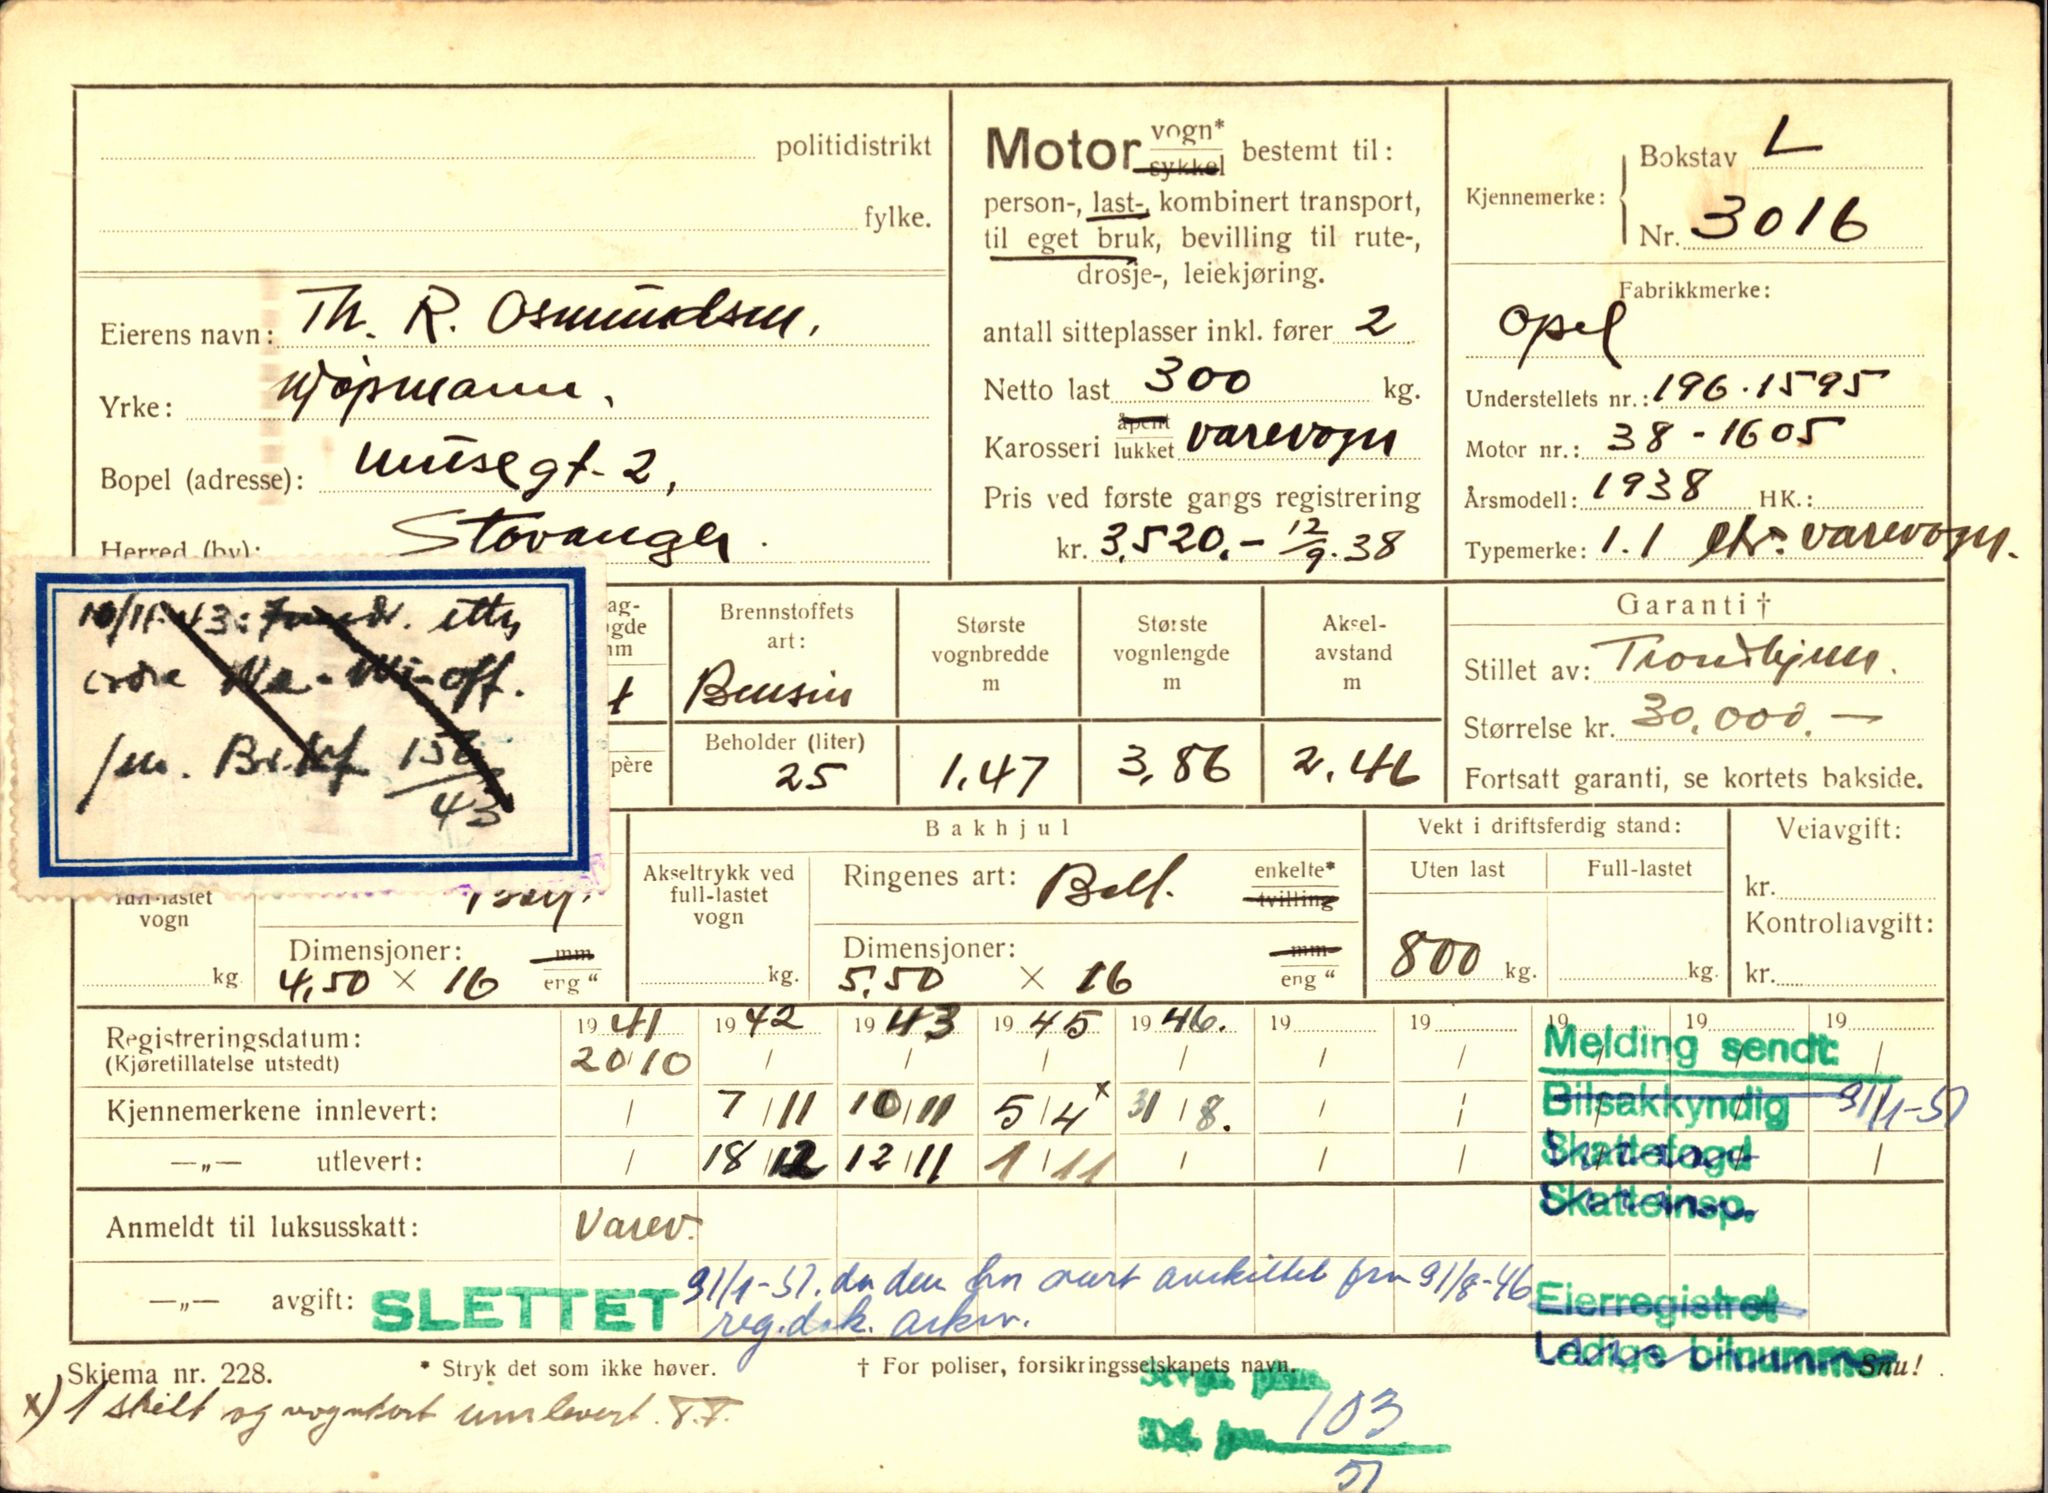 politidistrikt
fylke.
Eierens navn: Th. R. Osmundsen,
Yrke: Kjøpmann,
Bopel (adresse): Musegt. 2,
Herred (by): Stavanger.
Motor vogn* sykkel bestemt til:
person-, last-, kombinert transport,
til eget bruk, bevilling til rute-,
drosje-, leiekjøring.
antall sitteplasser inkl. fører 2
Netto last 300 kg.
Karosseri åpent lukket varevogn
Pris ved første gangs registrering
kr. 3,520.- 12/9.38
Kjennemerke: Bokstav L
Nr. 3016
Fabrikkmerke:
Opel
Understellets nr.: 196.1595
Motor nr.: 38-1605
Årsmodell: 1938 HK.:
Typemerke: 1.1 ltr. varevogn.
10/11.43: etter
ordre Wa-Wi-off.
jnr. 156/43
Brennstoffets art:
Bensin
Beholder (liter)
25
Største vognbredde m
1,47
Største vognlengde m
3,86
Aksel-avstand m
2,46
Garanti †
Stillet av: Trondhjem.
Størrelse kr. 30.000.-
Fortsatt garanti, se kortets bakside.
full-lastet
vogn
kg.
Dimensjoner: mm
4,50 × 16 eng "
Bakhjul
Akseltrykk ved full-lastet vogn
kg.
Ringenes art: Ball. enkelte* tvilling
Dimensjoner: mm
5,50 × 16 eng "
Vekt i driftsferdig stand:
Uten last
800 kg.
Full-lastet
kg.
Veiavgift:
kr.
Kontrollavgift:
kr.
Registreringsdatum: 19 41 19 42 19 43 19 45 19 46. 19 19 19 19 19
(Kjøretillatelse utstedt) 20/10
Kjennemerkene innlevert: 7/11 10/11 5/4 x 31/8.
—„— utlevert: 18/12 12/11 1/11
Melding sendt:
Bilsakkyndig 31/1-51
Skattefogd
Skatteinsp.
Eierregistret
Ledige bilnummer
Anmeldt til luksusskatt: Varev.
—„— avgift: SLETTET 31/1-51. da den har vært avskiltet fra 31/8-46
reg.dok. arkiv.
Skjema nr. 228. * Stryk det som ikke høver. † For poliser, forsikringsselskapets navn. Snu!
x) 1 skilt og vognkort innlevert. T.T.
103
51